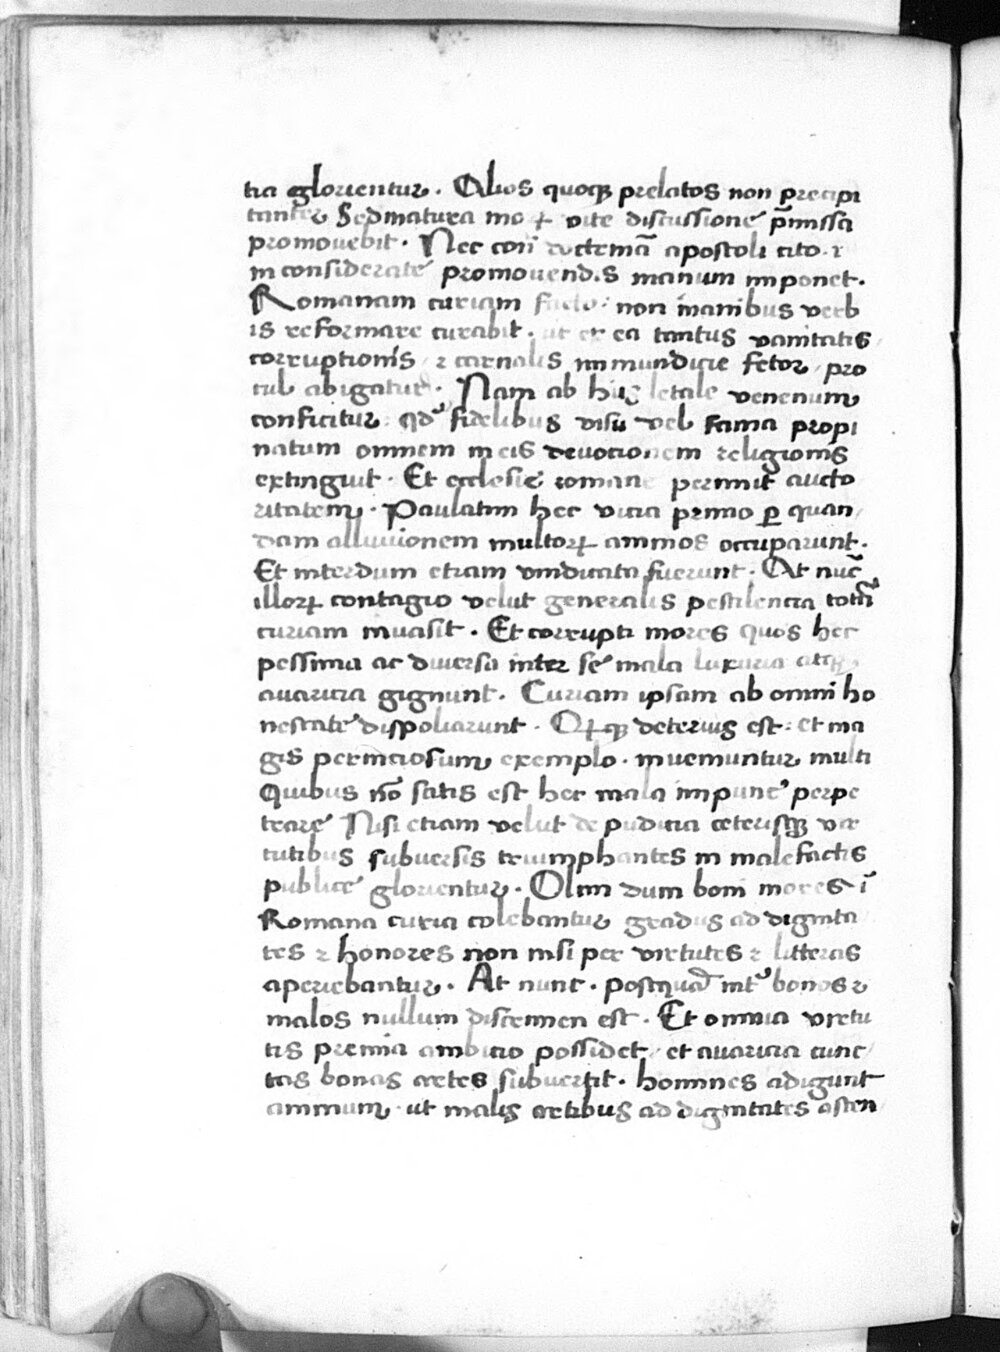 tia glorientur. Alios quoqꝫ prelatos non precipi
tanter Sed matura moꝝ vite discussione p̄missa
promouebit. Nec cont̄ doctrinā apostoli cito. ⁊
inconsiderate promouendis manum imponet.
Romanam curiam facto: non inanibus verb
is reformare curabit. ut ex ea tantus vanitatis
corruptionis ⁊ carnalis immundicie fetor pro
cul abigatur. Nam ab hijs letale venenum
conficitur: qd' fidelibus visu vel fama propi
natum omnem in eis deuotionem religionis
extinguit. Et ecclesie romane perimit aucto
ritatem. Paulatim hec vicia primo ꝑ quan
dam alluuionem multoꝝ animos occuparunt.
Et interdum etiam vindicata fuerunt. At nūc
illoꝝ contagio velut generalis pestilencia totā
curiam inuasit. Et corrupti mores quos hec
pessima ac diuersa inter se mala luxuria atqꝫ
auaricia gignunt. Curiam ipsam ab omni ho
nestate dispoliarunt. Qꝙ deterius est: et ma
gis perniciosum exemplo. inueniuntur multi
Quibus nō satis est hec mala impune perpe
trare Nisi etiam velut de pudicia ceterisqꝫ vir
tutibus subuersis triumphantes in malefactis
publice glorientur. Olim dum boni mores ī
Romana curia colebantur gradus ad dignita
tes ⁊ honores non nisi per virtutes ⁊ litteras
aperiebantur. At nunc. postquā int' bonos ⁊
malos nullum discrimen est. Et omnia virtu
tis premia ambicio possidet et auaricia cunc
tas bonas artes subuertit. homines adigunt
animum. ut malis artibus ad dignitates asten